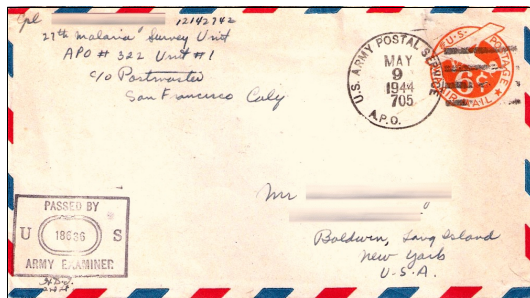 Cpl 12142742
27th Malaria Survey Unit
APO # 322 Unit #1
c/o Postmaster
San Francisco Caly
U.S. ARMY POSTAL SERVICE
MAY
9
1944
705
A.P.O.
U.S. POSTAGE
6¢
AIR MAIL
Mr
Baldwin, Long Island
New York
U.S.A.
PASSED BY
U 18636 S
ARMY EXAMINER